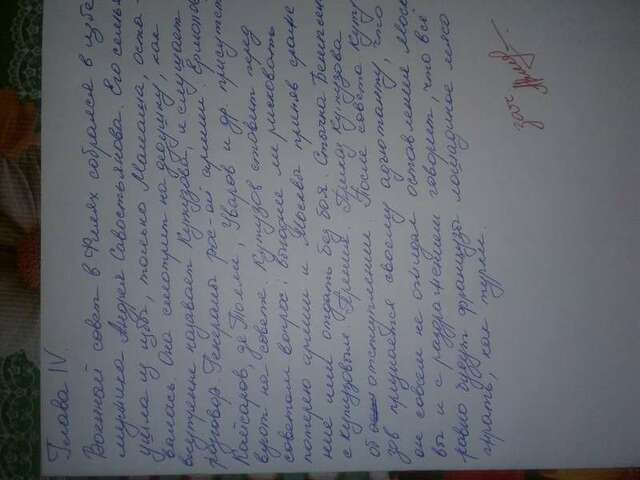 Глава IV.
Военный совет в Филях собрался в избе
мужика Андрея Савостьянова. Его семья
ушла из избы, только Малаша, оста-
валась. Она смотрит на дедушку, как
внутренне называет Кутузова, и слушает
разговор. Генералы рос-ой армии: Ермолов,
Кайсаров, де Толли, Уваров и др. присутст
вуют на совете. Кутузов ставит перед
советом вопрос: выгоднее ли рисковать
потерею армии и Москвы приняв сраже
ние или отдать без боя. Стычка Бенигсена
с Кутузовым. Прения. Приказ Кутузова
об отступлении. После совета Куту
зов признаётся своему адъютанту, что
он совсем не ожидал оставления Моск
вы и с раздражением говорит, что всё
равно будут французы лошадиное мясо
жрать, как турки.
зач